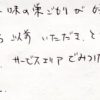 味の栗ごりが か
以前 いただき、と
サービスエリアでみつけ